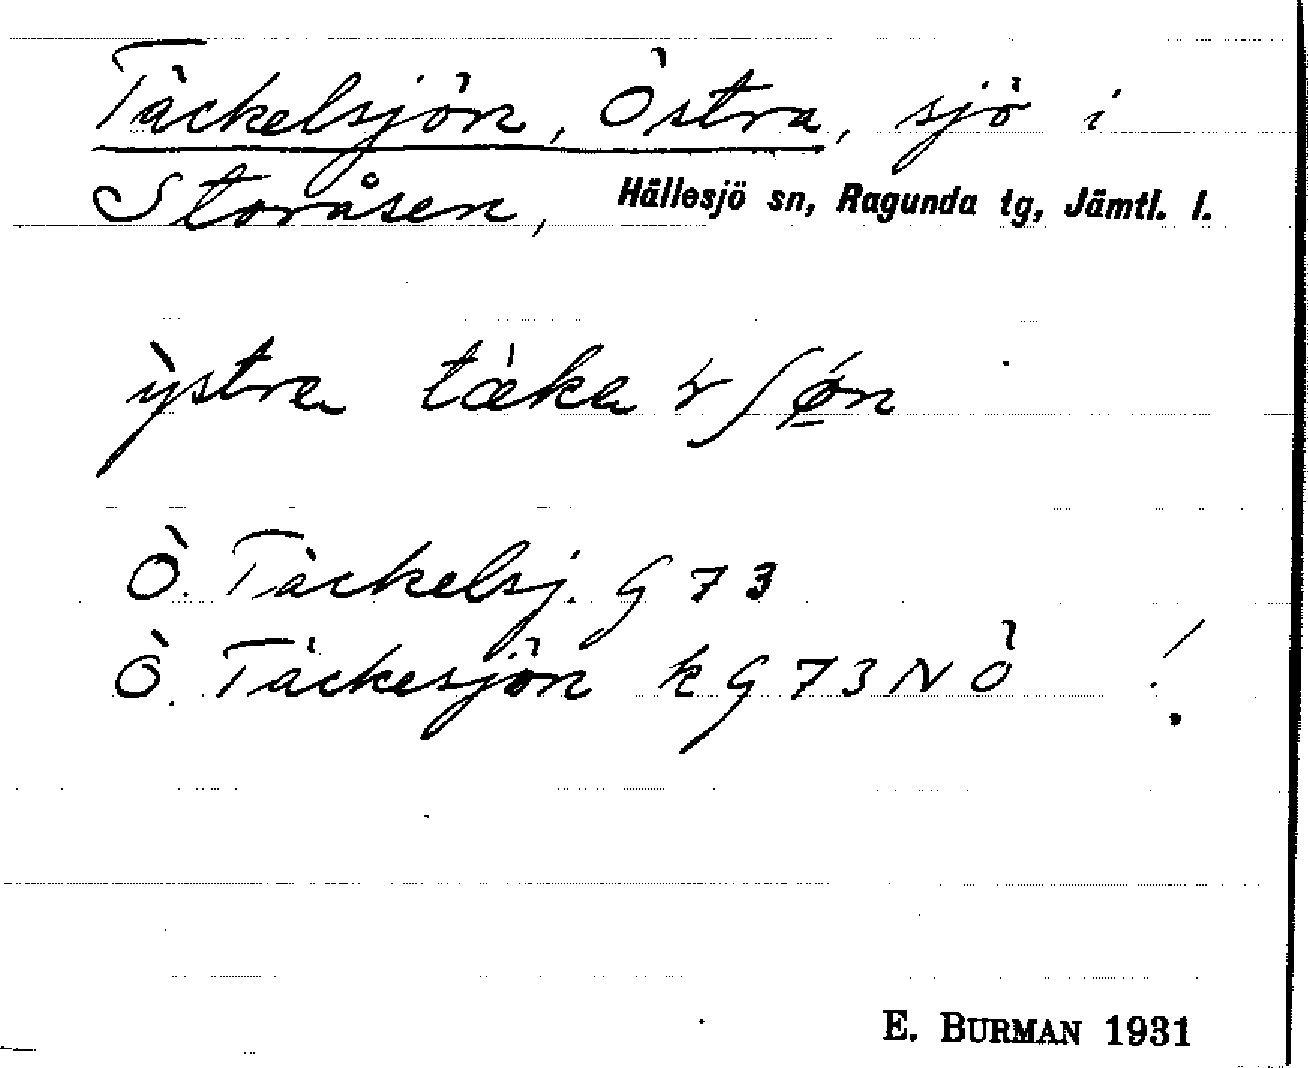 Täckelsjön, Östra, sjö i
Storåsen, Hällesjö sn, Ragunda tg, Jämtl. l.
ỳstra
Ö. Täckelsj. G 73
Ö. Täckesjön k G 73 NÖ !
E. BURMAN 1931